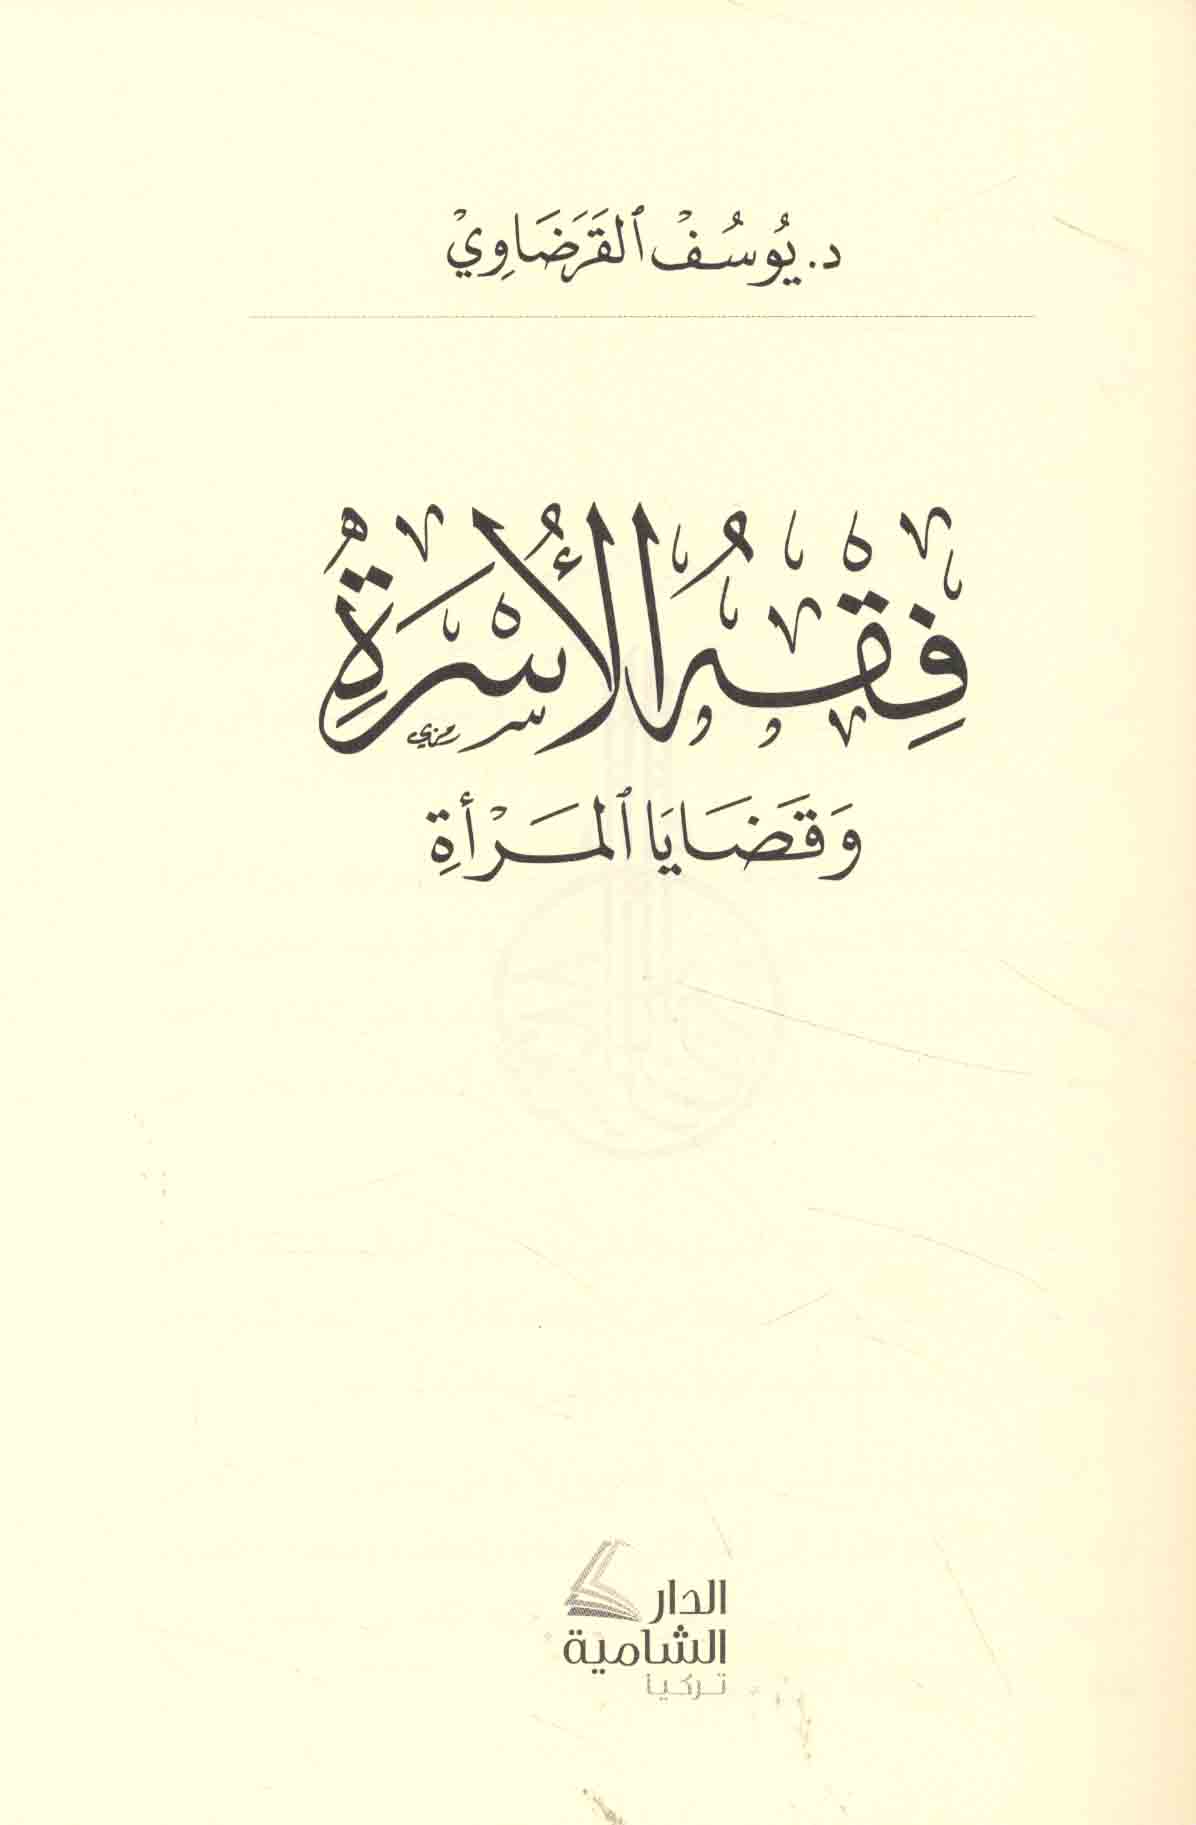 د. يُوسُفْ ٱلقَرَضَاوِيْ
فِقْهُ الأُسْرَةِ
وَقَضَايَا ٱلمَرْأةِ
الدار
الشامية
تركيا